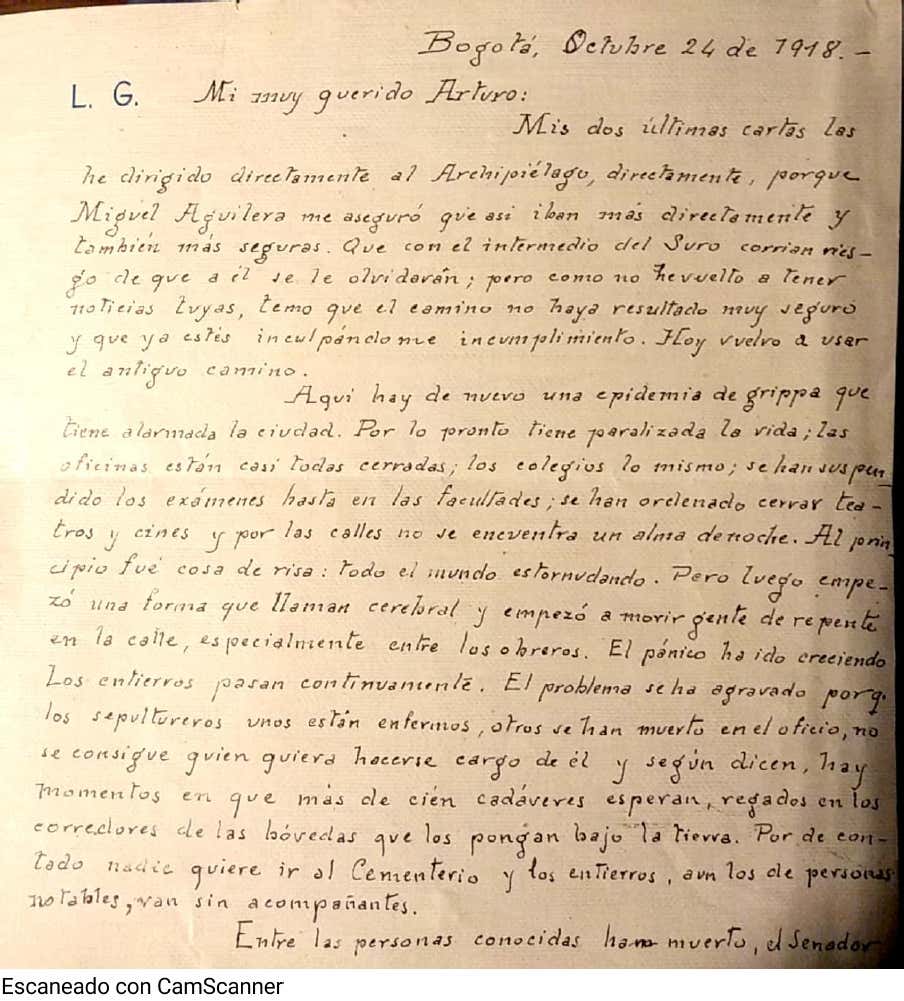 Bogotá, Octubre 24 de 1918. –
L. G. Mi muy querido Arturo:
Mis dos últimas cartas las
he dirigido directamente al Archipiélago, directamente, porque
Miguel Aguilera me aseguró que asi iban más directamente y
también más seguras. Que con el intermedio del Suro corrian ries-
go de que a él se le olvidarán; pero como no he vuelto a tener
noticias tuyas, temo que el camino no haya resultado muy seguro
y que ya estés inculpándome incumplimiento. Hoy vuelvo a usar
el antiguo camino.
Aqui hay de nuevo una epidemia de grippa que
tiene alarmada la ciudad. Por lo pronto tiene paralizada la vida; las
oficinas están casi todas cerradas; los colegios lo mismo; se han suspen_
dido los exámenes hasta en las facultades; se han ordenado cerrar tea-
tros y cines y por las calles no se encuentra un alma de noche. Al prin
cipio fué cosa de risa: todo el mundo estornudando. Pero luego empe-
zó una forma que llaman cerebral y empezó a morir gente de repente
en la calle, especialmente entre los obreros. El pánico ha ido creciendo
Los entierros pasan continuamente. El problema se ha agravado porq.
los sepultureros unos están enfermos, otros se han muerto en el oficio, no
se consigue quien quiera hacerse cargo de él y según dicen, hay
momentos en que más de cien cadáveres esperan, regados en los
corredores de las bóvedas que los pongan bajo la tierra. Por de con-
tado nadie quiere ir al Cementerio y los entierros, aun los de personas
notables, van sin acompañantes.
Entre las personas conocidas han muerto, el Senador
Escaneado con CamScanner